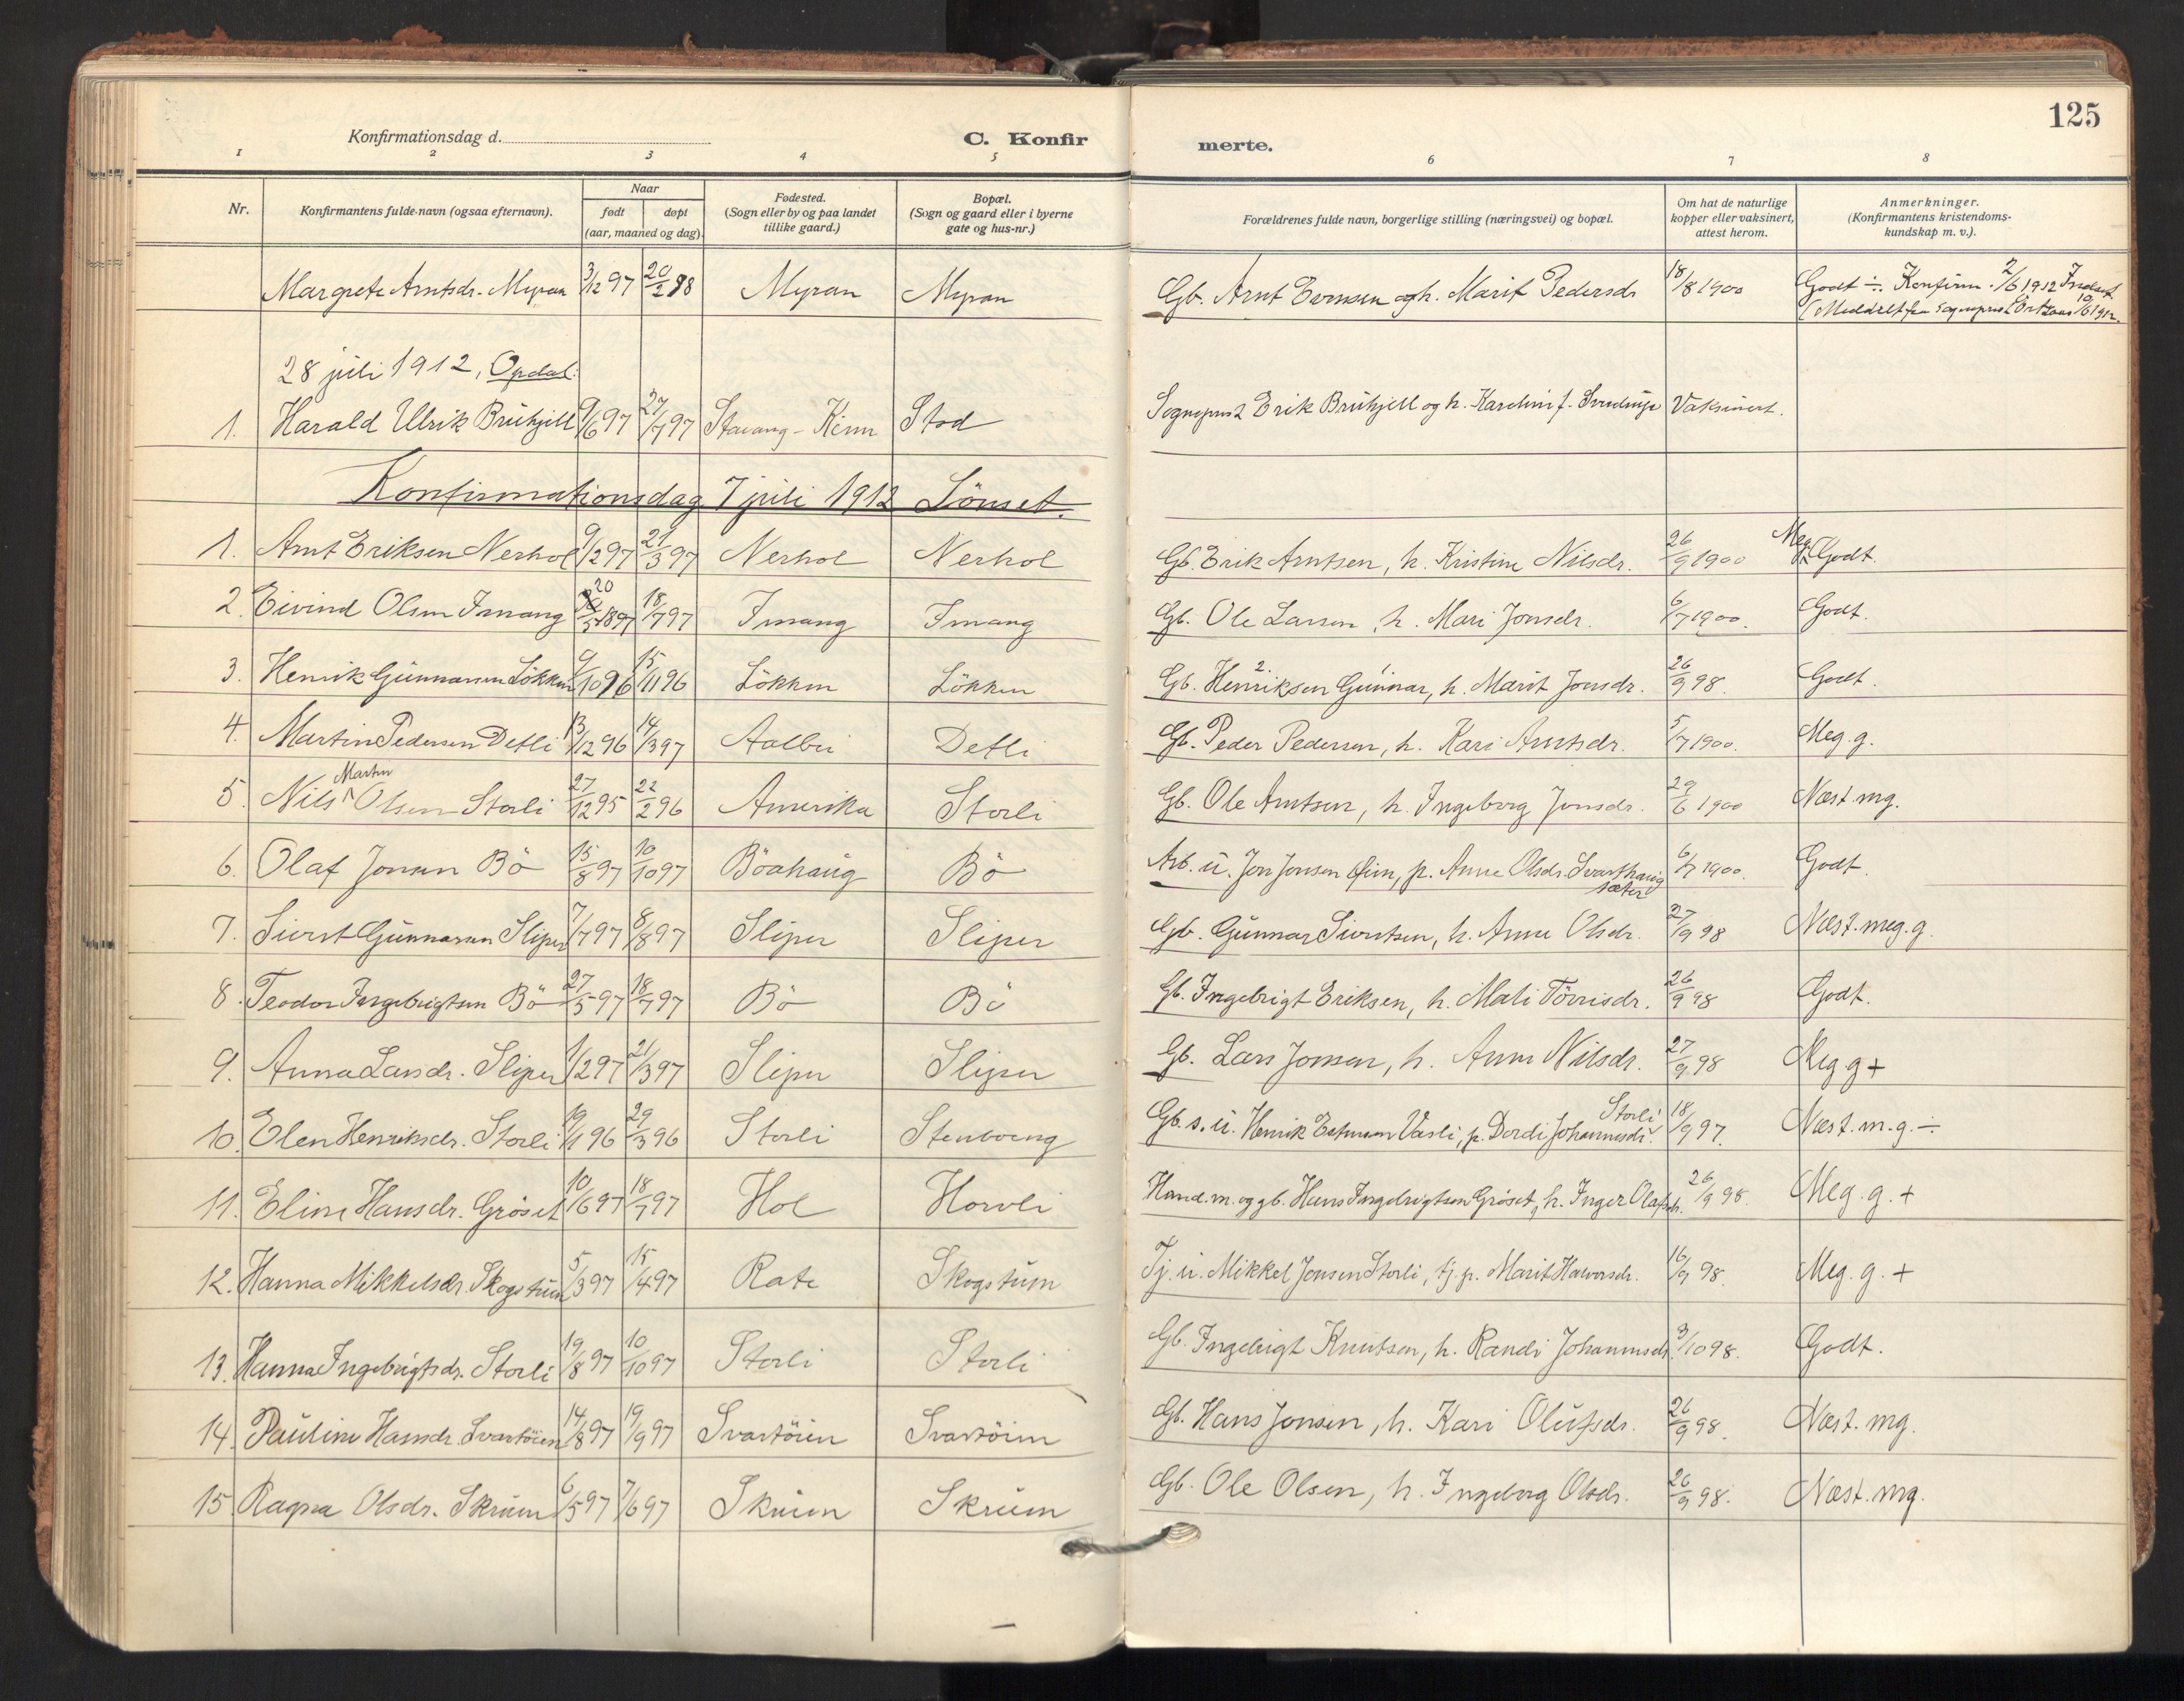 125
Konfirmationsdag d.
C. Konfir
merte.
1 2 3 4 5 6 7 8
Nr.
Konfirmantens fulde navn (ogsaa efternavn).
Naar
født
døpt
(aar, maaned og dag).
Fødested.
(Sogn eller by og paa landet
tillike gaard.)
Bopæl.
(Sogn og gaard eller i byerne
gate og hus-nr.)
Forældrenes fulde navn, borgerlige stilling (næringsvei) og bopæl.
Om hat de naturlige
kopper eller vaksinert,
attest herom.
Anmerkninger.
(Konfirmantens kristendoms-
kundskap m. v.).
Margrete Arntsdr. Myran 3/12 97 20/2 98 Myran Myran Gb. Arnt Evensen og h. Marit Pedersdr 18/8 1900 Godt ÷. Konfirm. 2/6 1912 Indset
(Meddelt fra sognepr. 10/6 1912.
28 juli 1912, Opdal:
1. Harald Ulrik Bruhjell 9/6 97 27/7 97 Stavang - Kinn Stod Sogneprest Erik Bruhjell og h. Karoline f. Sverdrup Vaksinert.
Konfirmationsdag 7 juli 1912 Lönset.
1. Arnt Eriksen Nerhol 9/2 97 21/3 97 Nerhol Nerhol Gb. Erik Arntsen, h. Kristine Nilsdr. 26/9 1900 Meg Godt.
2. Eivind Olsen Irnang 20/5 1897 18/7 97 Irnang Irnang Gb. Ole Larsen, h. Mari Jonsdr. 6/7 1900. Godt.
3. Henrik Gunnarsen Lökken 9/10 96 15/11 96 Lökken Lökken Gb. Henriksen 2. Gunnar 1, h. Marit Jonsdr. 26/9 98. Godt.
4. Martin Pedersen Detli 13/12 96 14/3 97 Aalbu Detli Gb. Peder Pedersen, h. Kari Arntsdr. 5/7 1900. Meg. g.
5. Nils Martin Olsen Storli 27/12 95 22/2 96 Amerika Storli Gb. Ole Arntsen, h. Ingeborg Jonsdr. 29/6 1900 Næst. mg.
6. Olaf Jonsen Bö 15/8 97 10/10 97 Böahaug Bö Arb. u. Jon Jonsen Öien, p. Anne Olsdr. Svarthaugsæter 6/7 1900. Godt.
7. Sivert Gunnarsen Sliper 7/7 97 8/8 97 Sliper Sliper Gb. Gunnar Sivertsen, h. Anne Olsdr. 27/9 98 Næst. meg. g.
8. Teodor Ingebrigtsen Bö 27/5 97 18/7 97 Bö Bö Gb. Ingebrigt Eriksen, h. Mali Törrisdr. 26/9 98 Godt.
9. Anna Larsdr. Sliper 1/2 97 21/3 97 Sliper Sliper Gb. Lars Jonsen, h. Anne Nilsdr. 27/9 98 Meg. g +
10. Elen Henriksdr. Storli 19/1 96 29/3 96 Storli Stenboeng Gb. s. u. Henrik Estensen Vasli, p. Dordi Johannesdr. Storli 18/9 97. Næst. m. g. ÷
11. Eline Hansdr. Gröset 10/6 97 18/7 97 Hol Hovli Hand. m. og gb. Hans Ingebrigtsen Gröset, h. Inger Olafsdr. 26/9 98. Meg. g. +
12. Hanna Mikkelsdr. Skogstuen 5/3 97 15/4 97 Rate Skogstuen Tj. u. Mikkel Jonsen Storli, tj. p. Marit Haversdr. 16/9 98. Meg. g. +
13. Hanna Ingebrigtsdr. Storli 19/8 97 10/10 97 Storli Storli Gb. Ingebrigt Knutsen, h. Randi Johannesdr. 3/10 98. Godt.
14. Pauline Hansdr. Svartöien 14/8 97 19/9 97 Svartöien Svartöien Gb. Hans Jonsen, h. Kari Olufsdr. 26/9 98. Næst. mg.
15. Ragna Olsdr. Skruen 6/5 97 7/6 97 Skruen Skruen Gb. Ole Olsen, h. Ingeborg Olsdr. 26/9 98. Næst. mg.